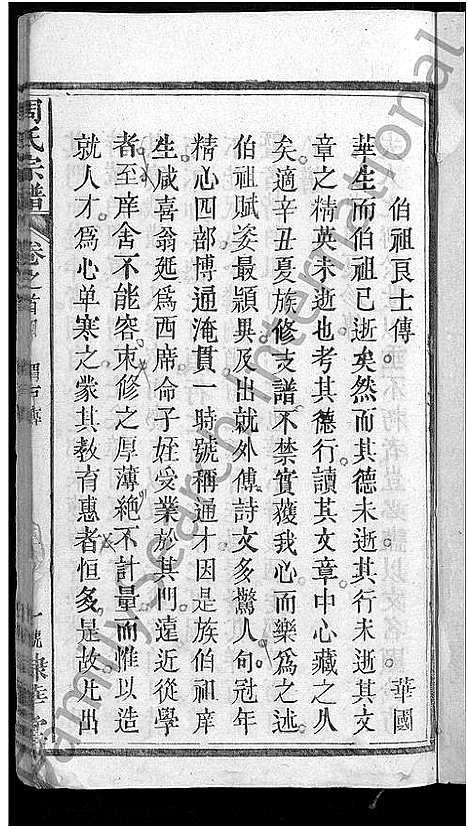 伯祖良士傳
華國
華生而伯祖已逝矣然而其德未逝其行未逝其文
章之精英未逝也考其德行讀其文章中心藏之久
矣適辛丑夏族修支譜不禁實獲我心而樂為之述
伯祖賦姿最穎異及出就外傅詩文多驚人句冠年
精心四部博通淹貫一時號稱通才因是族伯祖庠
生咸喜翁延為西席命子姪受業於其門遠近從學
者至庠舍不能容束修之厚薄絕不計量而惟以造
就人才為心单寒之家其教育惠者恒多是故凡出
周氏宗譜
卷之首
FamilySearch International